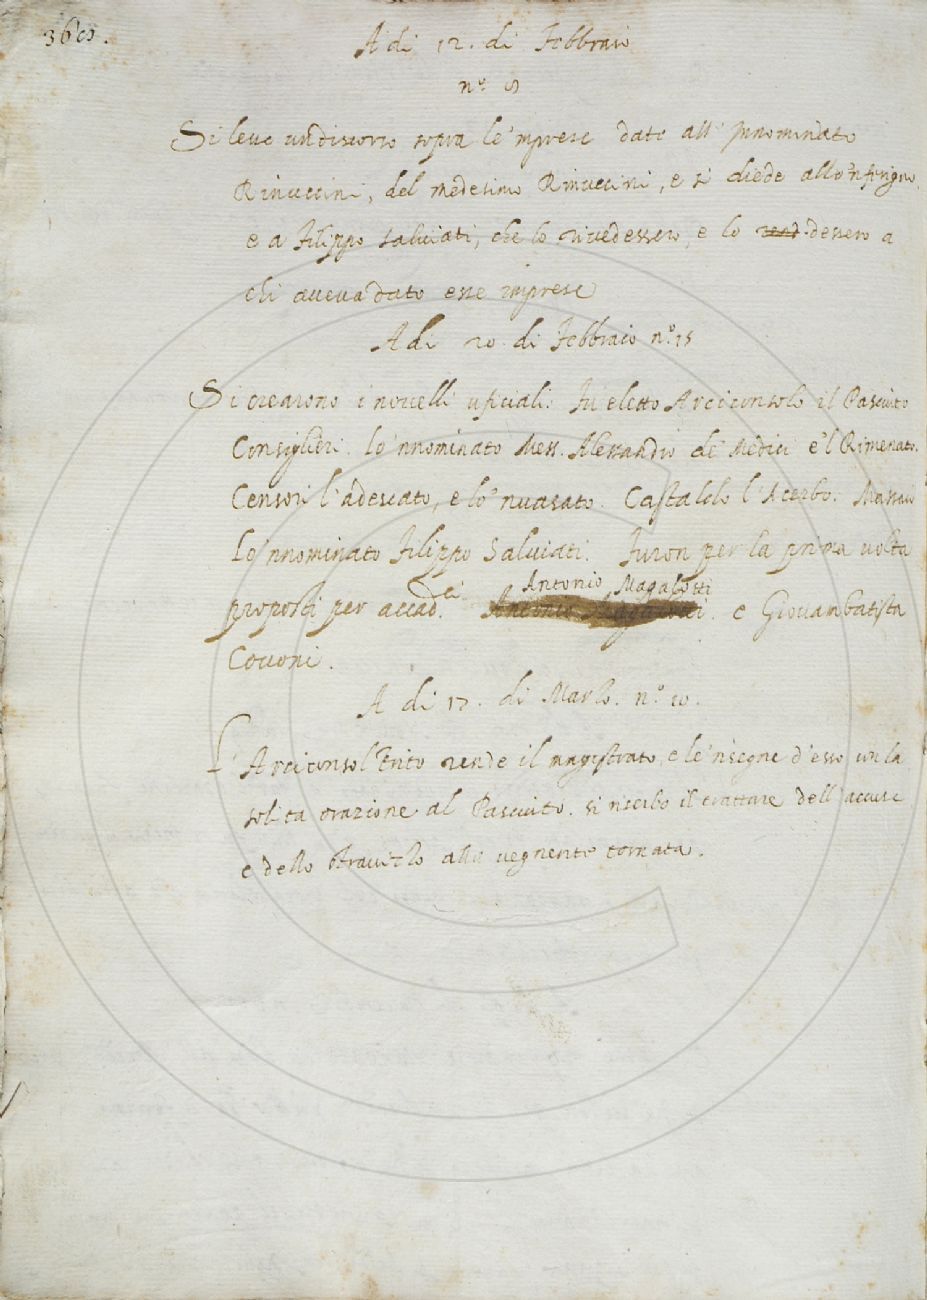 A di 12. di Febbraio
n.°
Si lesse un discorso sopra le 'mprese date all' innominato
Rinuccini, del medesimo Rinuccini, e si diede allo 'nferigno,
e a Filippo Salviati, che lo rivedessero, e lo dessero a
chi aveva dato esse imprese
A di 20 di Febbraio n.° 15
Si crearono i novelli uficiali. Fu eletto Arciconsolo il Pasciuto
Consiglieri lo 'nnominato Mess. Alessandro de Medici e 'l Rimenato.
Censori l'adescato, e lo 'nvasato. Castaldo l'Acerbo. Massaio
Lo 'nnominato Filippo Salviati. Furon per la prima volta
proposti per accad.ci Antonio Magalotti e Giovambatista
Covoni.
A di 17. di Marzo. n.° 20.
L' Arciconsol Trito rende il magistrato, e le 'nsegne d'esso con la
solita orazione al Pasciuto. si riserbò il trattare dell'accuse
e dello Stravizzo alla vegnente tornata.